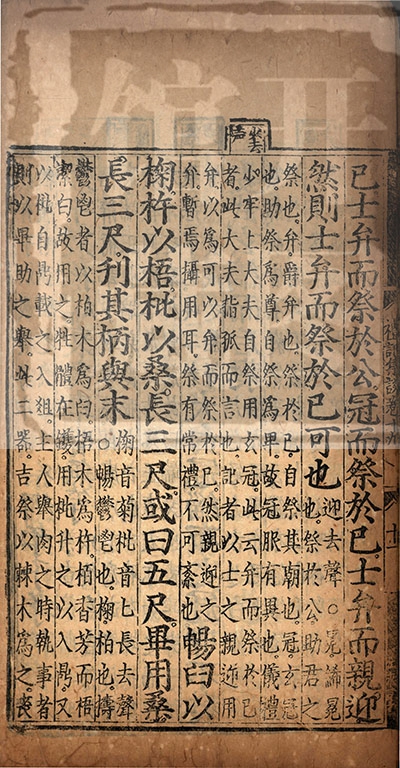 已士弁而祭於公冠而祭於已士弁而親迎
然則士弁而祭於已可也迎去聲。○冕絺冕
也。祭於公助君之
祭也。弁。爵弁也。祭於已。自祭其廟也。冠。玄冠
也。助祭爲尊。自祭爲卑。故冠服有異也。儀禮
少牢上大夫自祭用玄冠。此云弁而祭於已
者。此大夫指孤而言也。記者以士之親迎用
弁。以爲可以弁而祭於已。然親迎之
弁。暫焉攝用耳。祭有常禮。不可紊也。暢臼以
椈杵以梧。枇以桑。長三尺。或曰五尺。畢用桑。
長三尺。刋其柄與末椈音菊。枇音匕。長去聲
○暢。鬱鬯也。椈。柏也。擣
鬱鬯者。以柏木爲臼。梧木爲杵。栢香芳而梧
潔白。故用之。牲體在鑊。用枇升之以入鼎。又
以枇自鼎載之入俎。主人舉肉之時。執事者
則以畢助之舉。此二器。吉祭以棘木爲之。喪